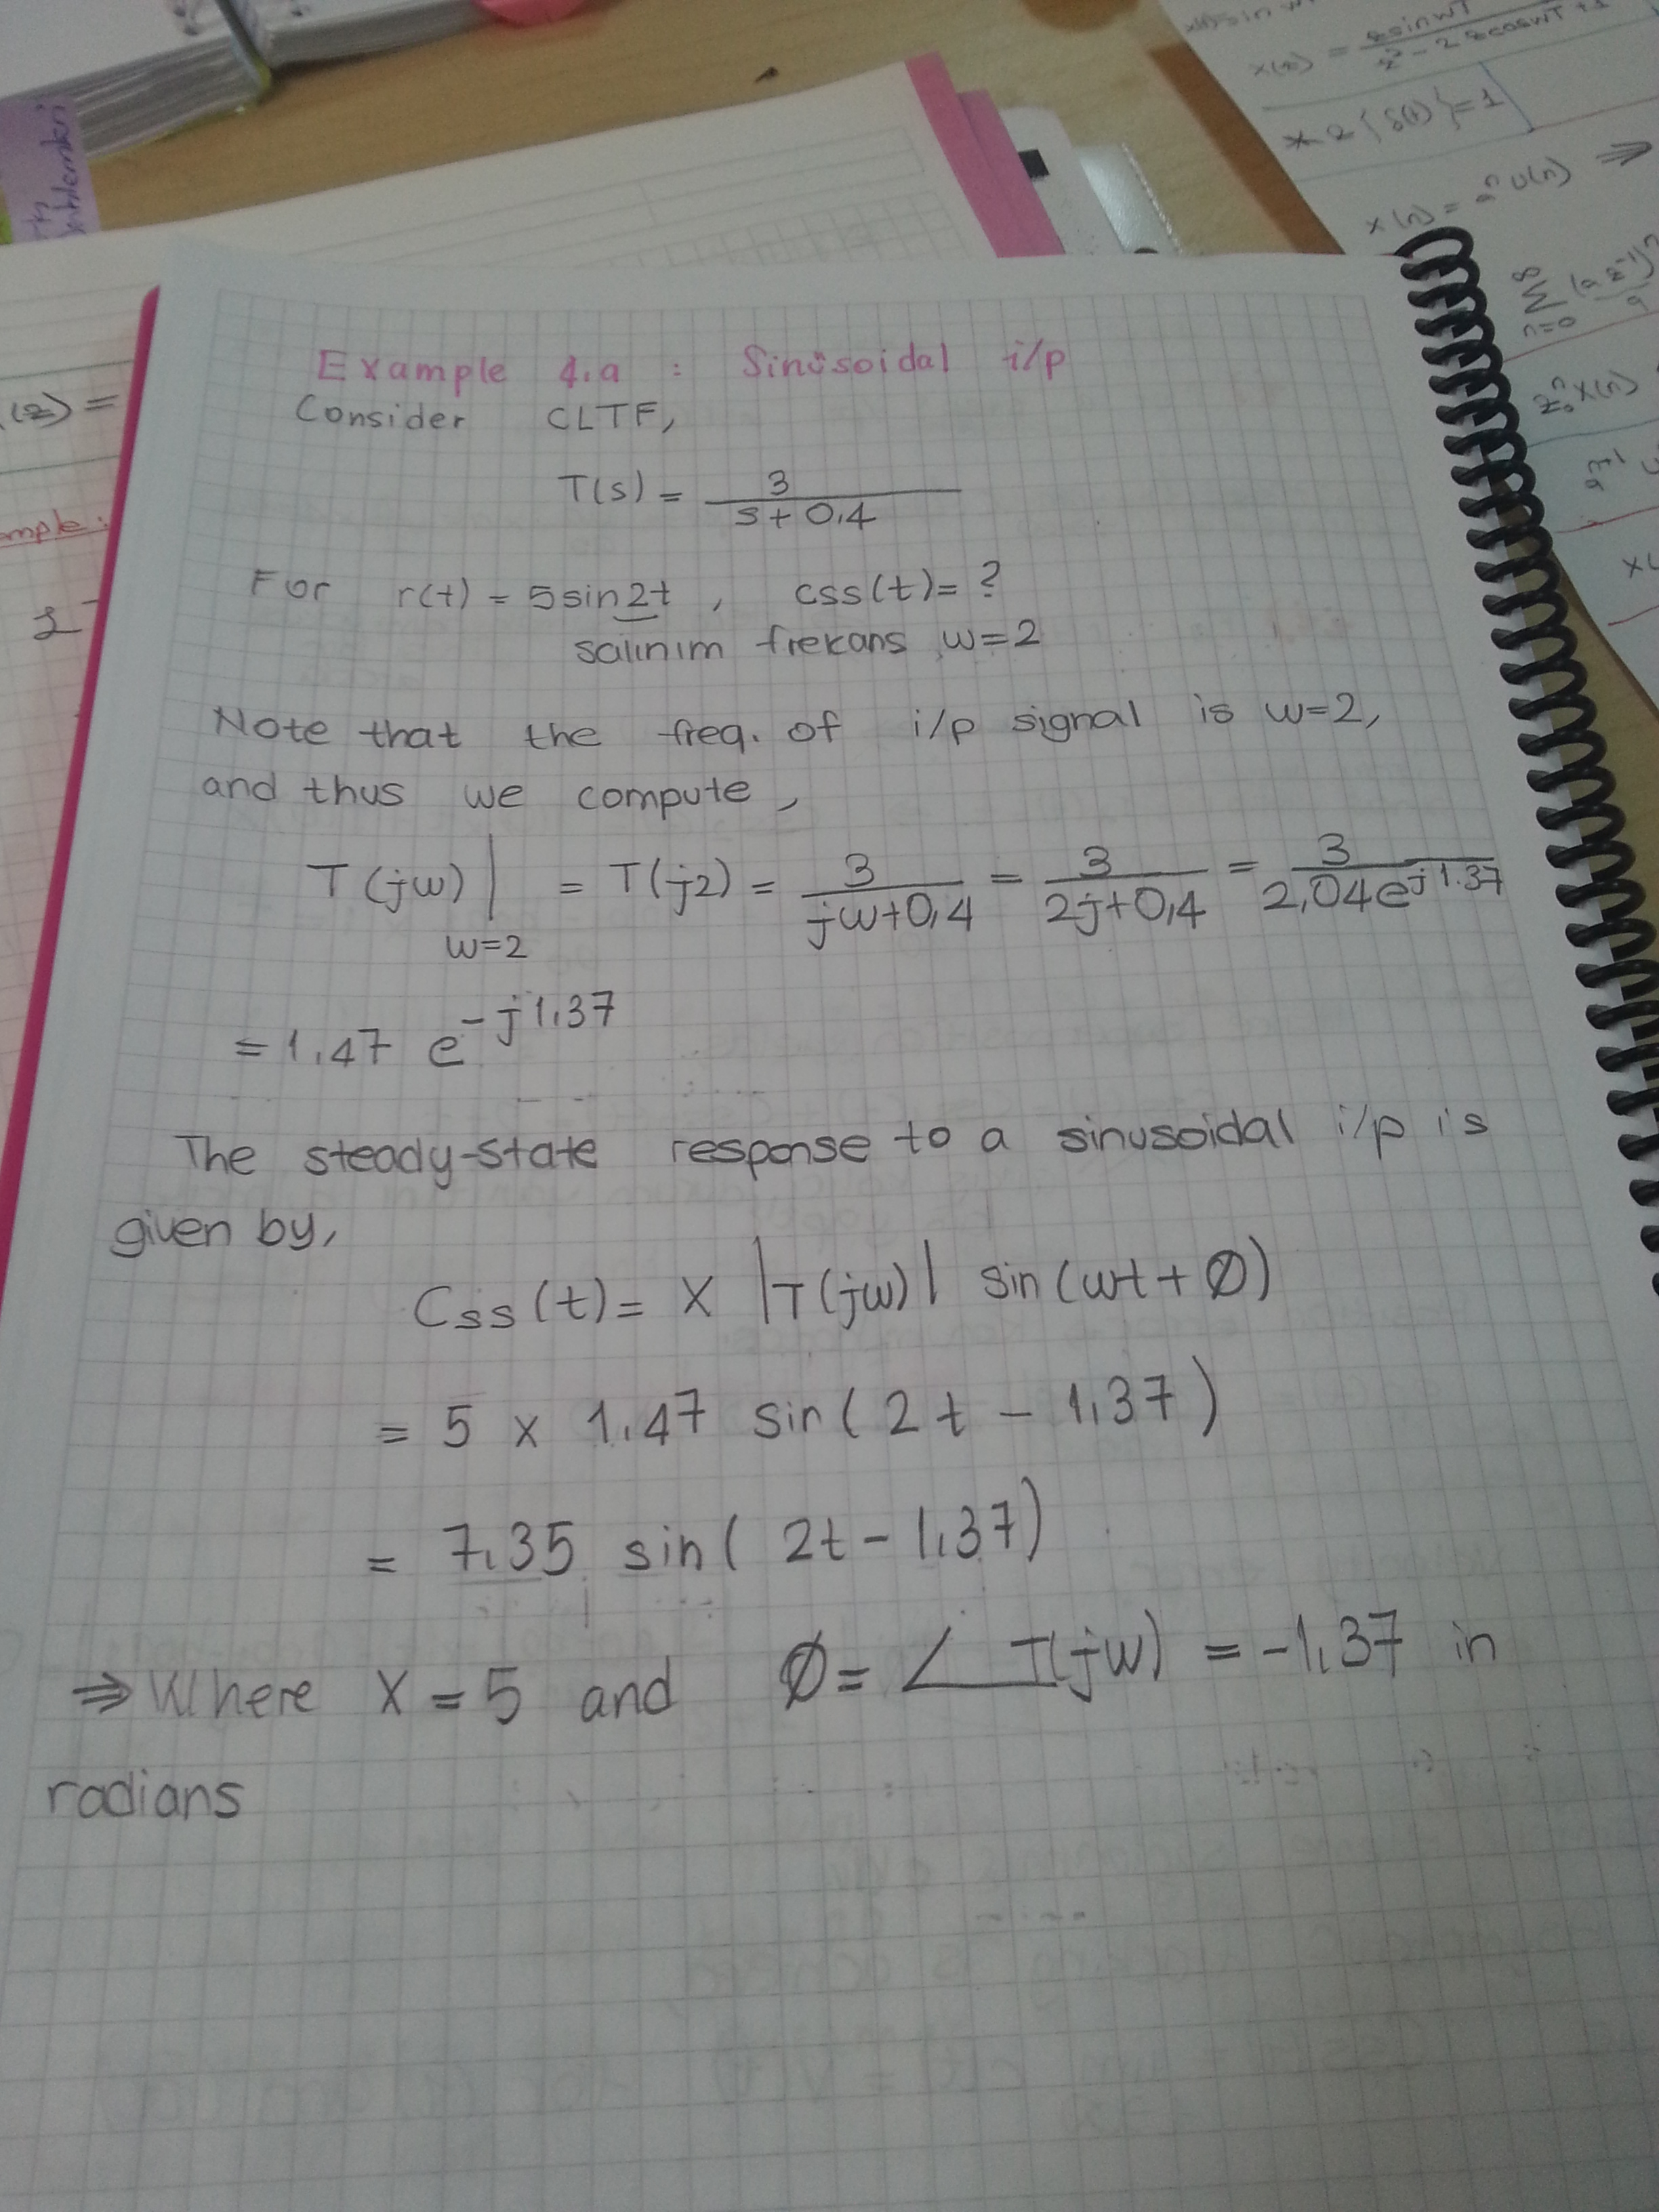 Example 4.a : Sinüsoidal i/p
Consider CLTF,
T(s) = 3 / (s + 0,4)
For r(t) = 5sin2t , css(t)= ?
salınım frekans w=2
Note that the freq. of i/p signal is w=2,
and thus we compute,
T(jw)|w=2 = T(j2) = 3 / (jw+0,4) = 3 / (2j+0,4) = 3 / (2,04e^j1.37)
= 1.47 e^-j1.37
The steady-state response to a sinusoidal i/p is
given by,
Css(t) = X |T(jw)| sin(wt + Ø)
= 5 x 1.47 sin( 2t - 1,37)
= 7.35 sin( 2t - 1,37)
⇒ Where X = 5 and Ø = ∠T(jw) = -1,37 in
radians
(z) =
mple:
x(z) = zsinwT / (z² - 2zcoswT + 1
x(n) = aⁿ u(n) ⇒